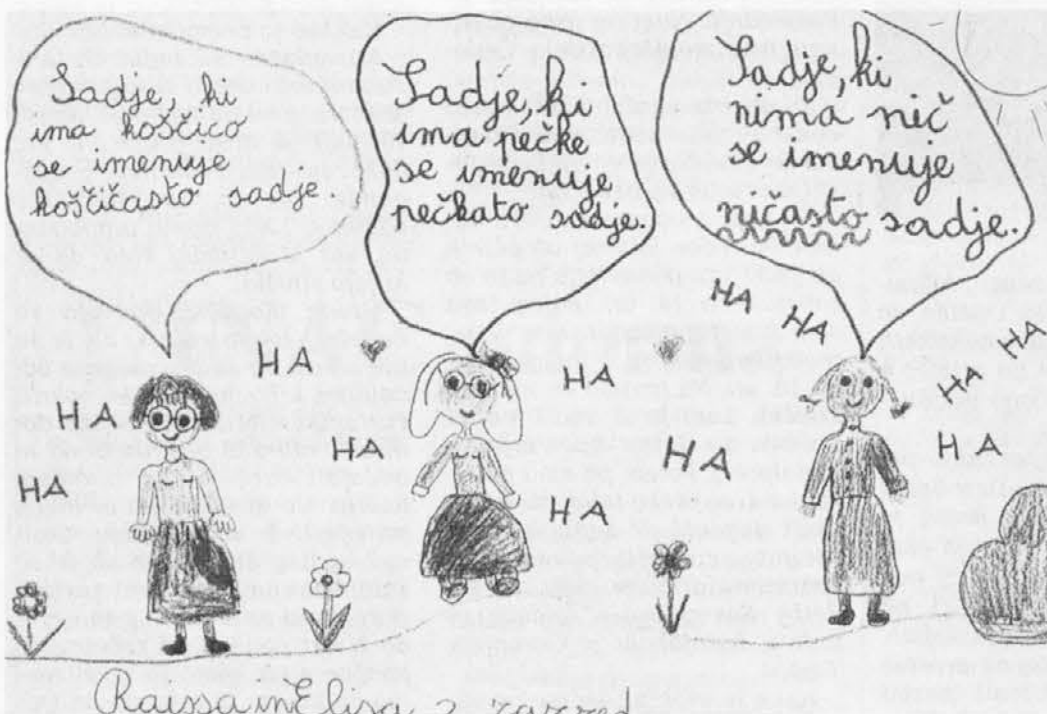 Sadje, ki
ima koščico
se imenuje
koščičasto sadje
Sadje, ki
ima pečke
se imenuje
pečkato sadje.
Sadje, ki
nima nič
se imenuje
ničasto sadje.
HA
HA
HA
HA
HA
HA
HA
HA
HA
HA
HA
HA
HA
Raissa in Elisa, 2. razred